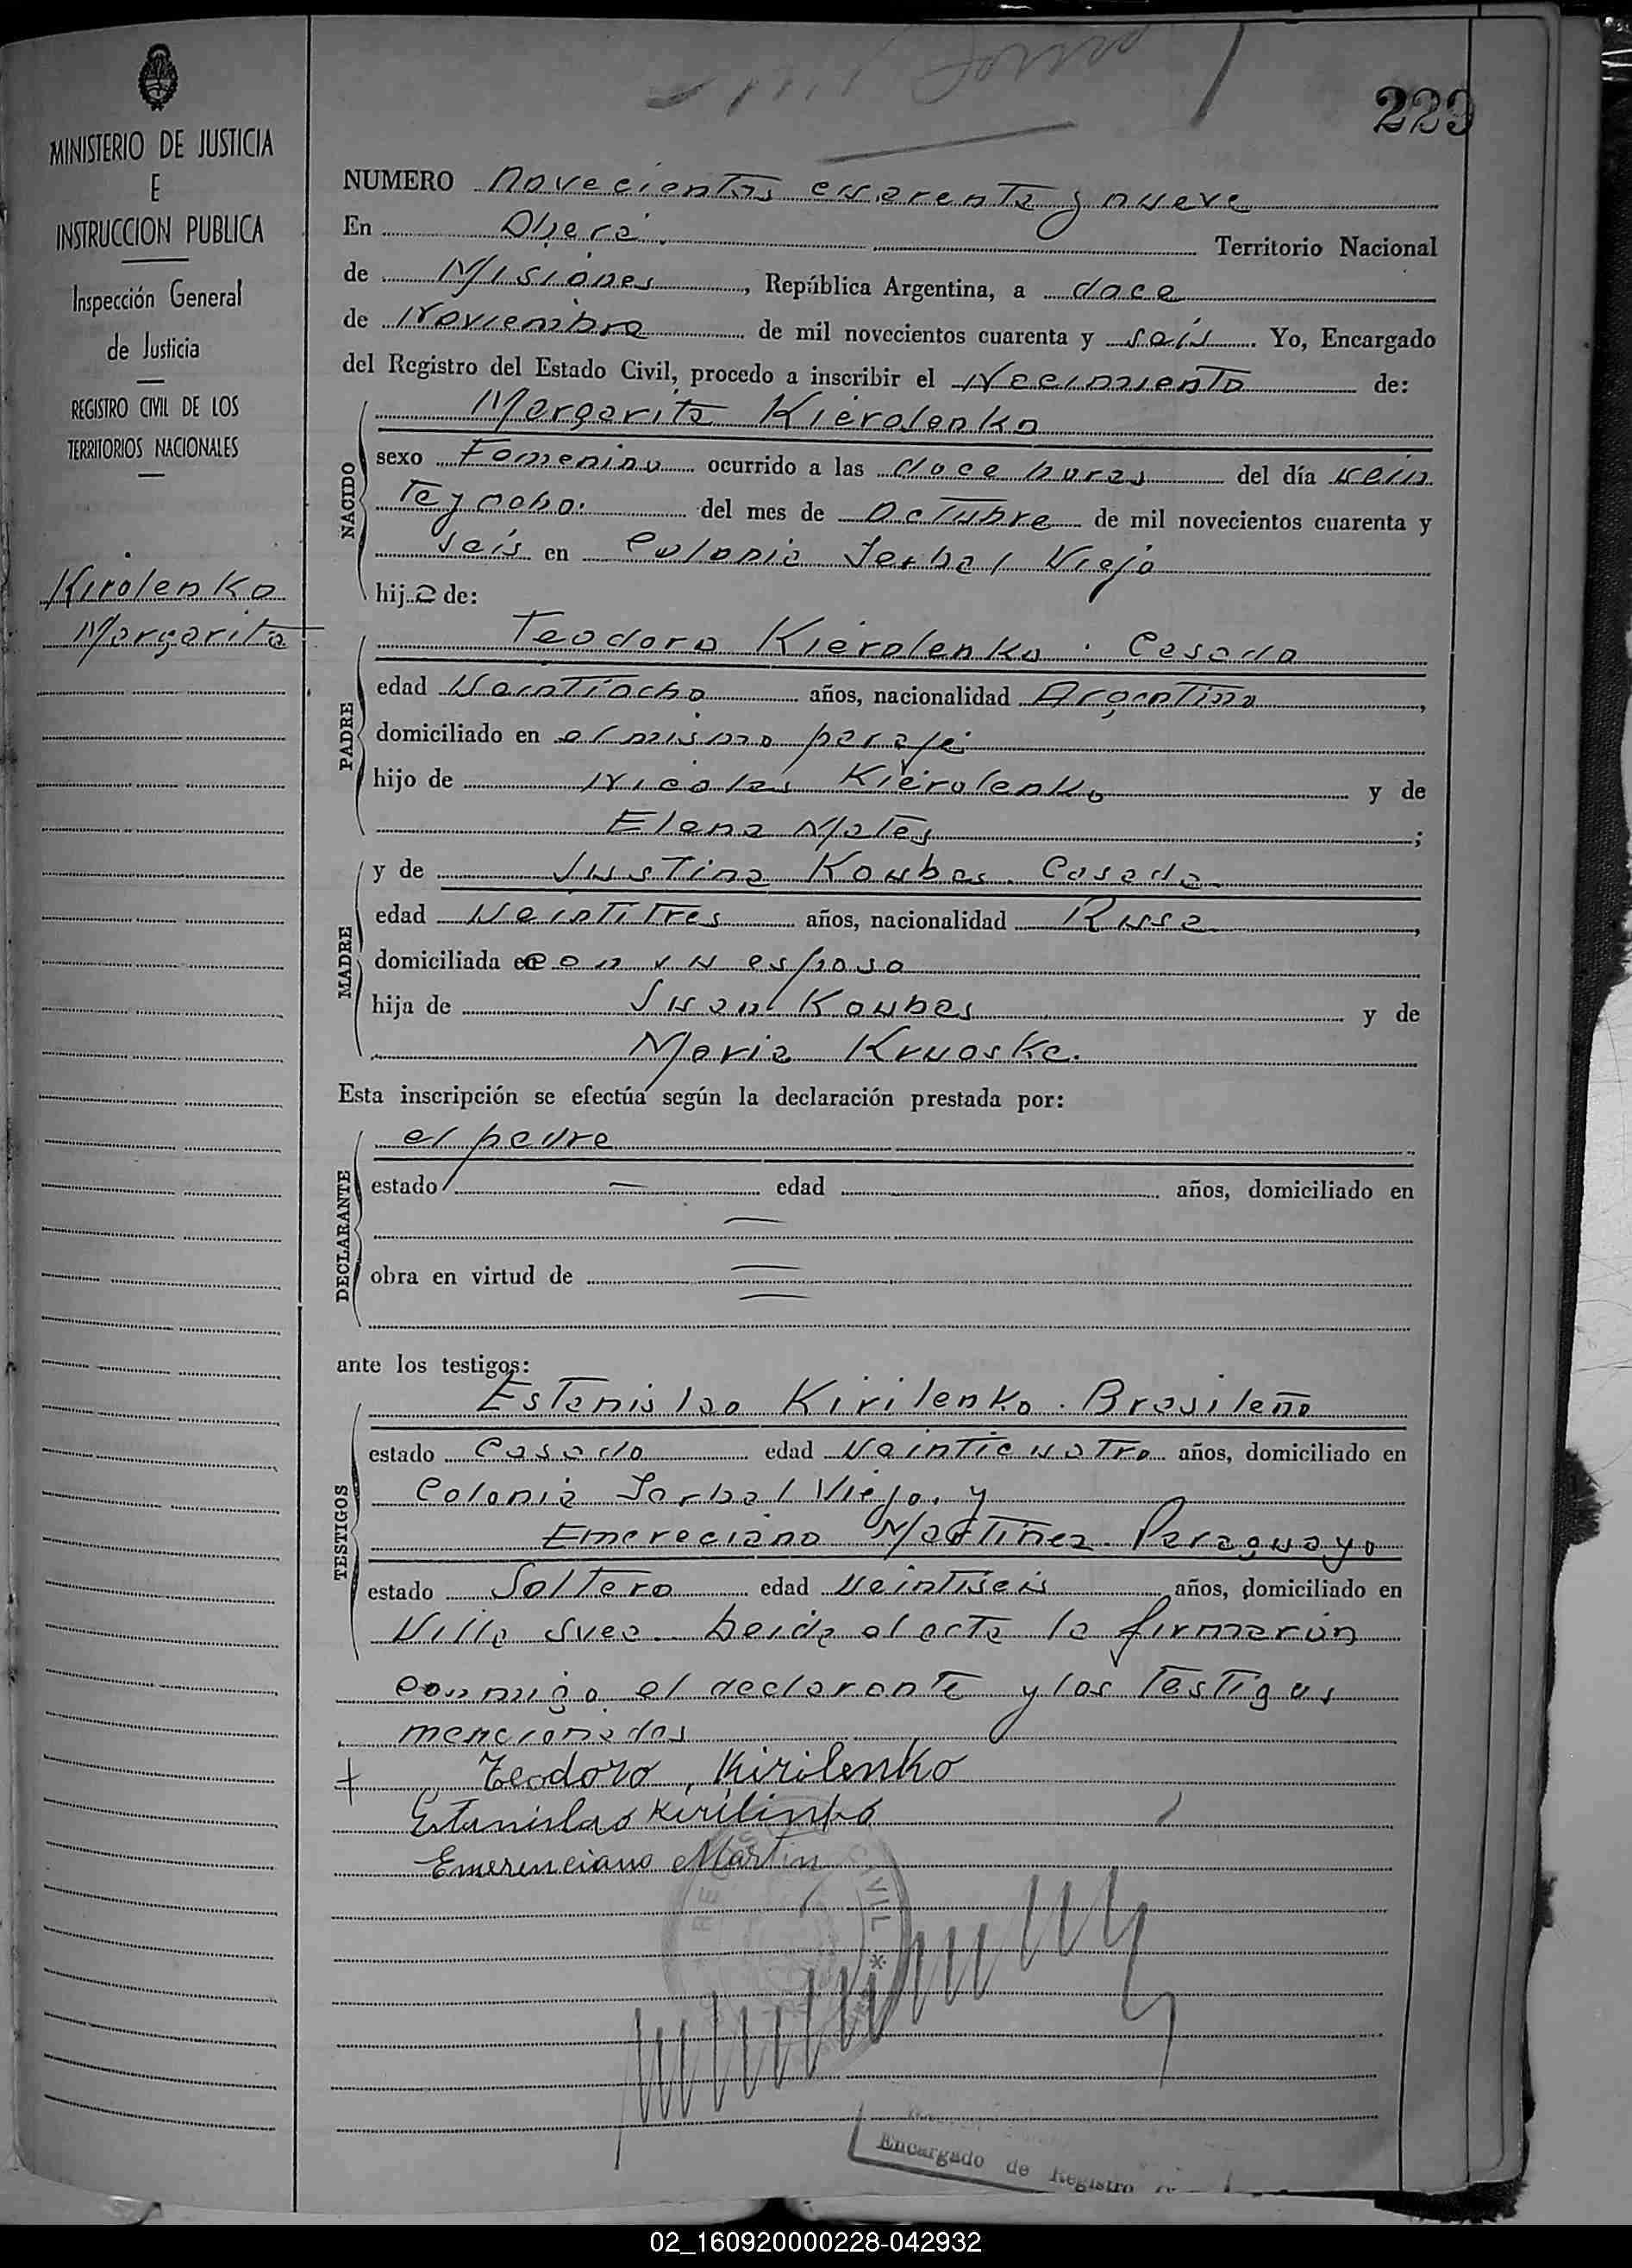 223
MINISTERIO DE JUSTICIA
E
INSTRUCCION PUBLICA
Inspección General
de Justicia
REGISTRO CIVIL DE LOS
TERRITORIOS NACIONALES
Kirolenko
Margarita
NUMERO novecientos cuarenta y nueve
En Oberá. Territorio Nacional
de Misiones, República Argentina, a doce
de Noviembre de mil novecientos cuarenta y seis. Yo, Encargado
del Registro del Estado Civil, procedo a inscribir el Nacimiento de:
Margarita Kierolenko
NACIDO
sexo Femenino ocurrido a las doce horas del día vein
te y ocho. del mes de Octubre de mil novecientos cuarenta y
seis en Colonia Yerbal Viejo
hija de:
Teodoro Kierolenko. Casado
PADRE
edad Veintiocho años, nacionalidad Argentino,
domiciliado en el mismo paraje
hijo de Nicolas Kierolenko y de
Elena Mates;
y de Justina Koubas. Casada.
MADRE
edad Veintitres años, nacionalidad Rusa,
domiciliada con su esposo
hija de Juan Koubas y de
Maria Kruoska.
Esta inscripción se efectúa según la declaración prestada por:
el padre
DECLARANTE
estado — edad años, domiciliado en
obra en virtud de
ante los testigos:
Estanislao Kirilenko. Brasileño
TESTIGOS
estado Casado edad Veinticuatro años, domiciliado en
Colonia Yerbal Viejo. y
Emereciano Martinez. Paraguayo
estado Soltero edad Veintiseis años, domiciliado en
Villa Svea. Leida el acta la firmarón
conmigo el declarante y los Testigos
mencionados
Teodoro, Kirilenko
Estanislao Kirilinko
Emerenciano Martin
CIVIL *
Encargado de Registro
02_160920000228-042932